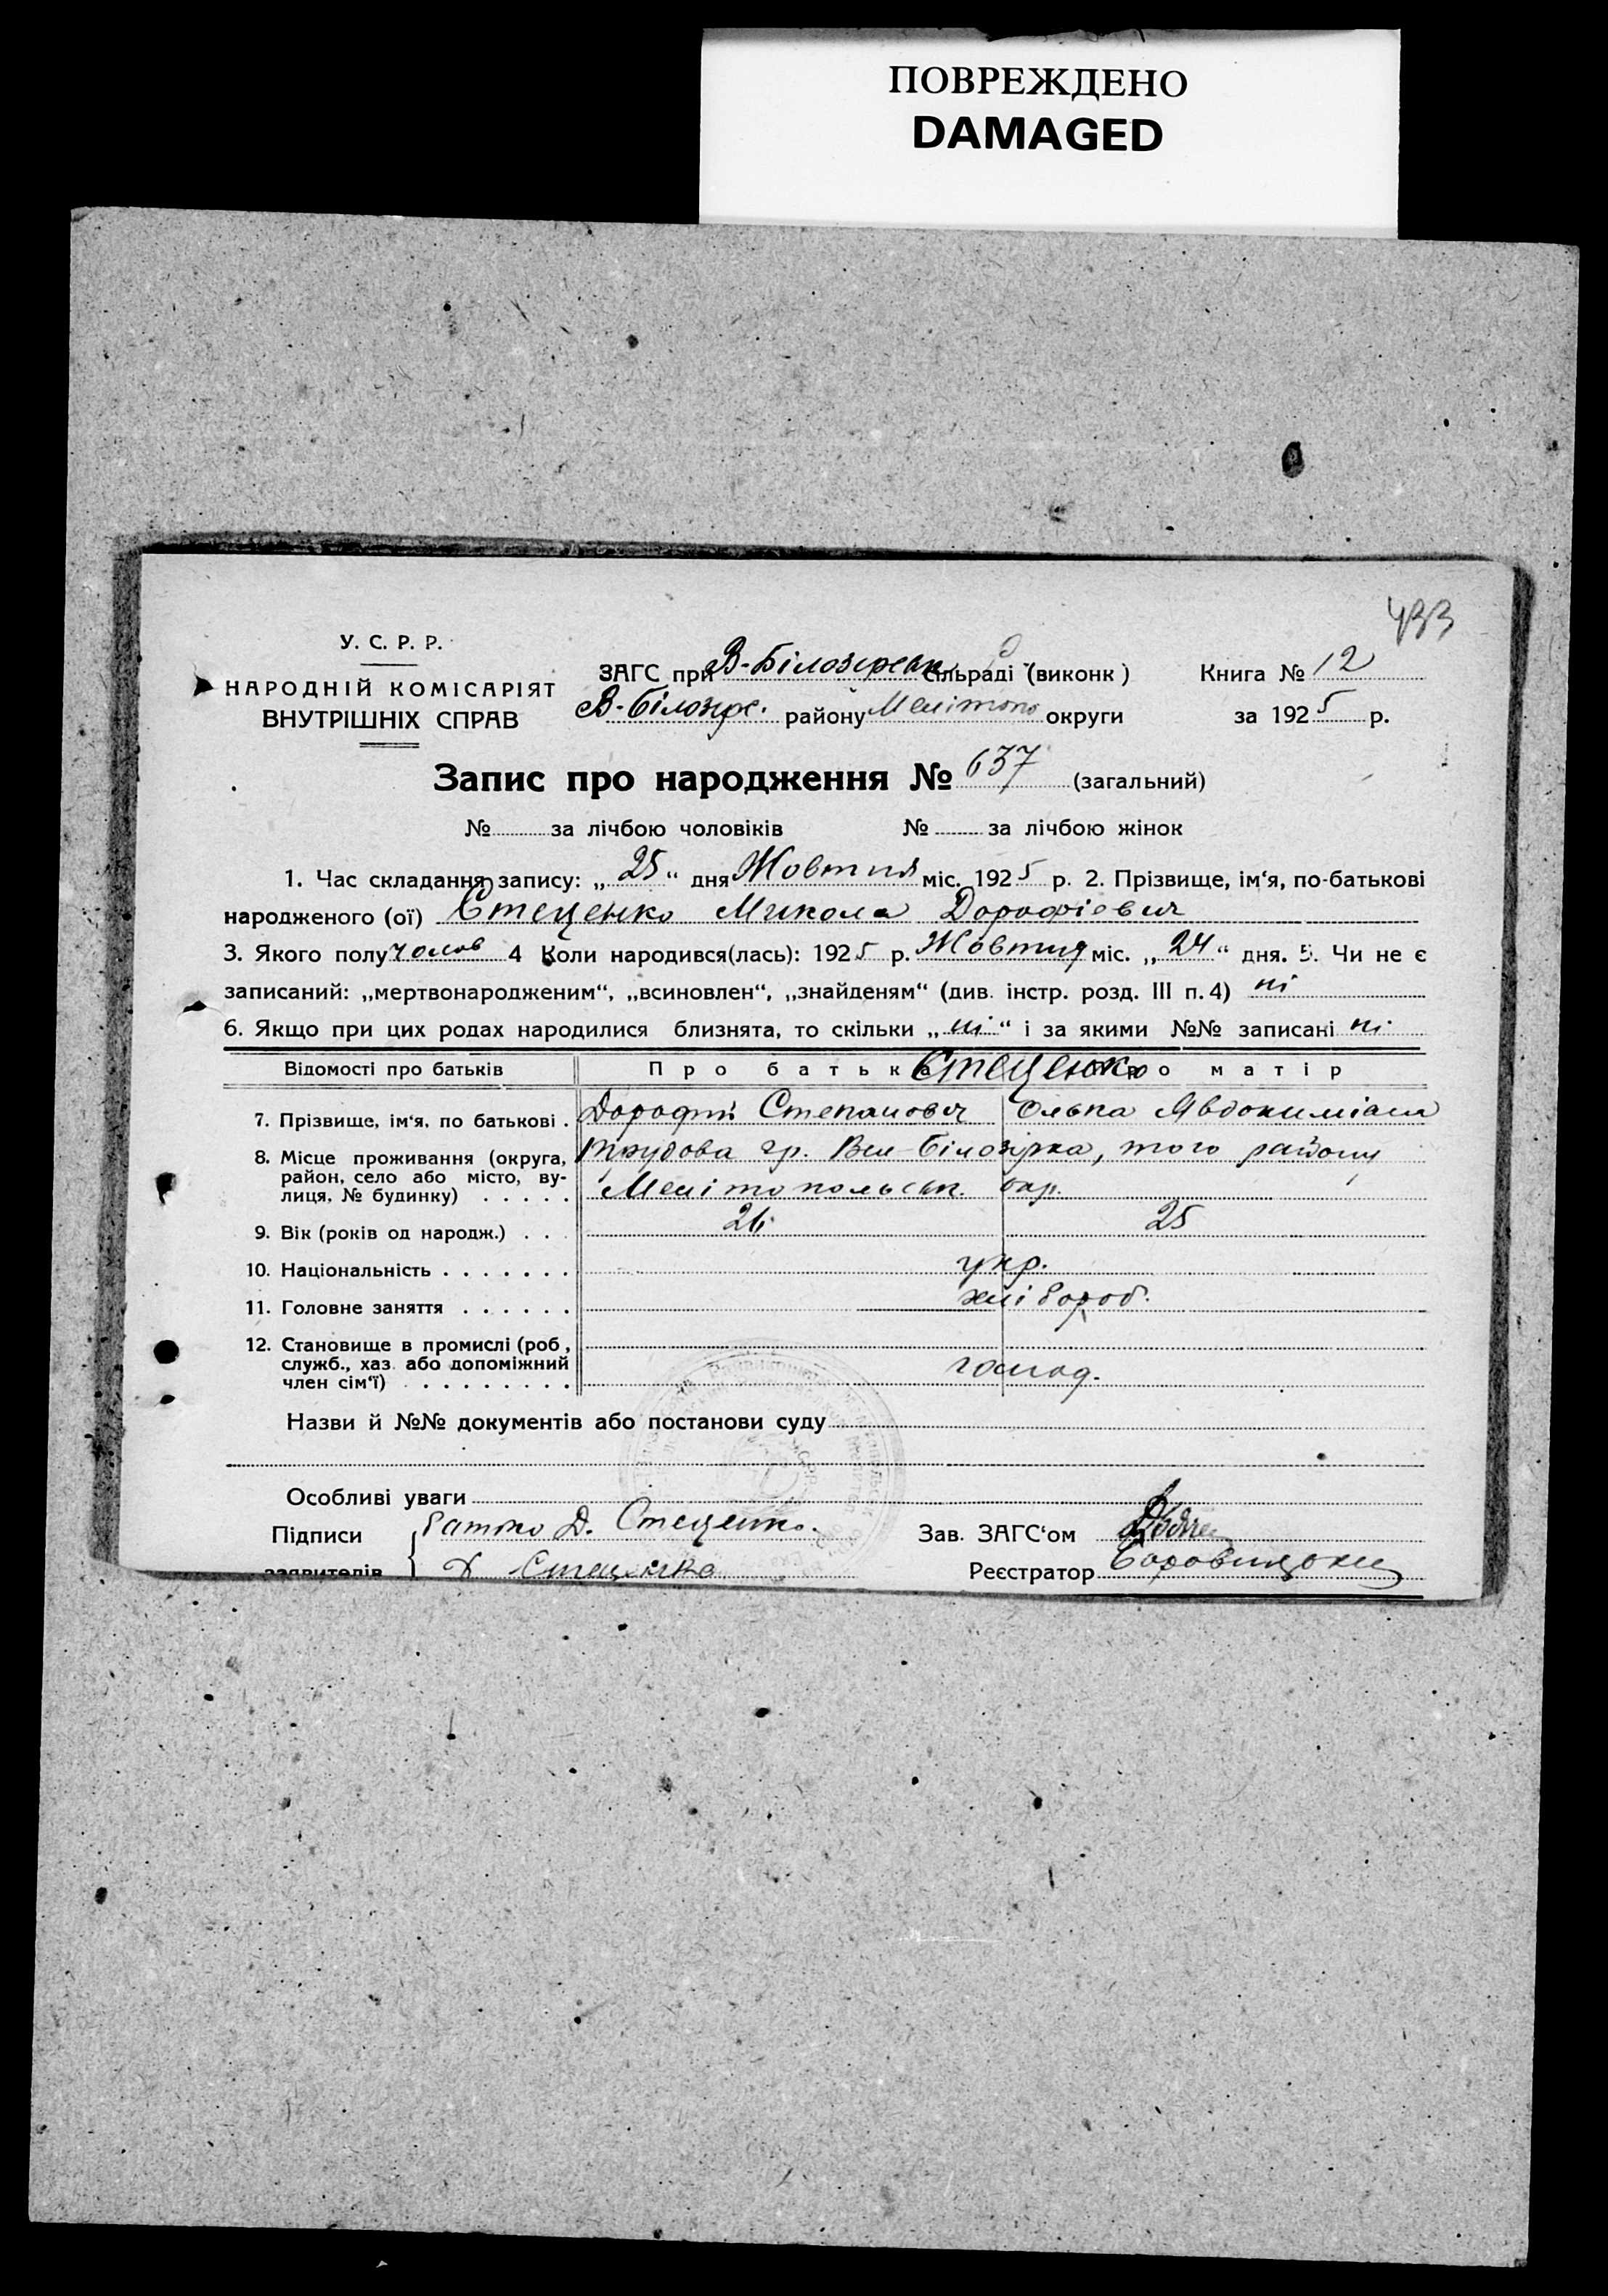 ПОВРЕЖДЕНО
DAMAGED
433
У. С. Р. Р.
НАРОДНІЙ КОМІСАРІЯТ
ВНУТРІШНІХ СПРАВ
ЗАГС при В-Білозерськ сільраді (виконк) Книга № 12
В-Білозер. району Мелітопо округи за 1925 р.
Запис про народження № 637 (загальний)
№ за лічбою чоловіків № за лічбою жінок
1. Час складання запису: „25“ дня Жовтня міс. 1925 р. 2. Прізвище, ім‘я, по-батькові
народженого (ої) Стеценко Микола Дорофієвич
3. Якого полу чолов 4 Коли народився(лась): 1925 р. Жовтня міс. „24“ дня. 5. Чи не є
записаний: „мертвонародженим“, „всиновлен“, „знайденям“ (див. інстр. розд. III п. 4) ні
6. Якщо при цих родах народилися близнята, то скільки „ні“ і за якими №№ записані ні
Відомості про батьків Про батька Стеценко Про матір
7. Прізвище, ім‘я, по батькові . Дорофій Степанович Ольга Явдокимівна
8. Місце проживання (округа, гр. Вел-Білозірка, того району
район, село або місто, вулиця, № будинку) . . . . . Мелітопольськ. окр.
9. Вік (років од народж.) . . . 26 25
10. Національність . . . . . . . укр.
11. Головне заняття . . . . . . хлібороб.
12. Становище в промислі (роб,
служб., хаз. або допоміжний
член сім‘ї) . . . . . . . . .
Назви й №№ документів або постанови суду
Особливі уваги
Підписи батько Д. Стеценко. Зав. ЗАГС‘ом
заявителів Стеценко Реєстратор